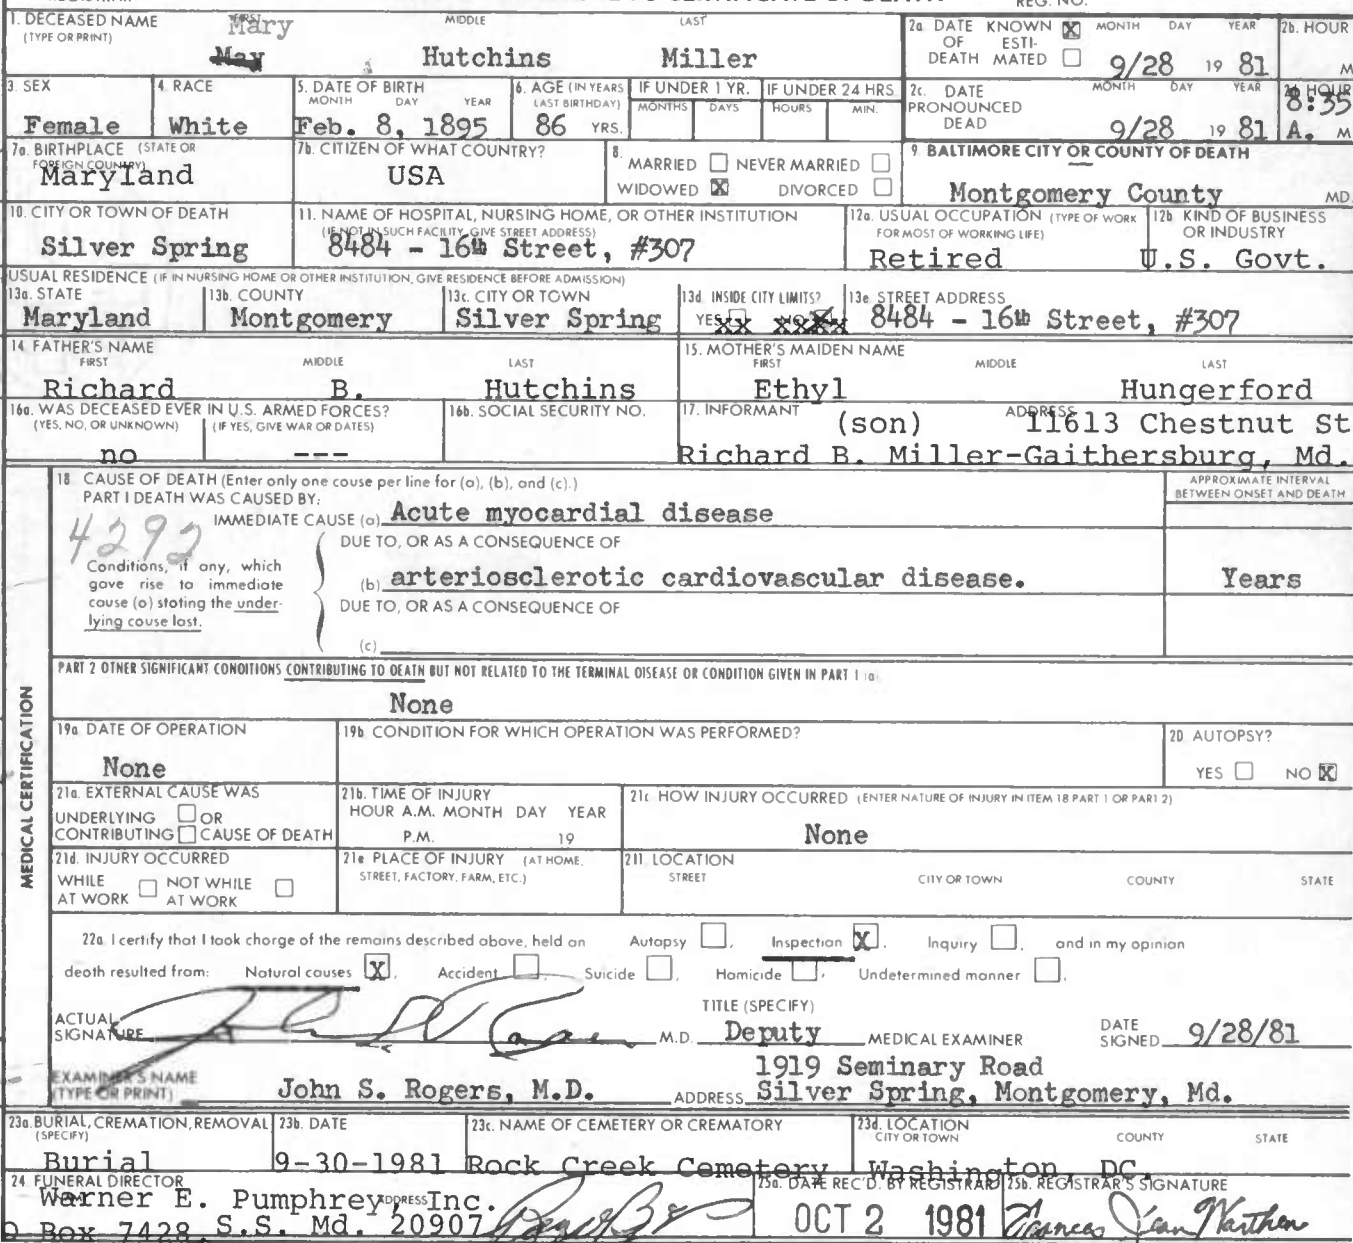 REG. NO.
1. DECEASED NAME FIRST MIDDLE LAST
(TYPE OR PRINT)
Mary
May Hutchins Miller
2a. DATE KNOWN X MONTH DAY YEAR
OF ESTI-
DEATH MATED 9/28 19 81
2b. HOUR
M
3. SEX
Female
4. RACE
White
5. DATE OF BIRTH
MONTH DAY YEAR
Feb. 8, 1895
6. AGE (IN YEARS
LAST BIRTHDAY)
86 YRS.
IF UNDER 1 YR.
MONTHS DAYS
IF UNDER 24 HRS
HOURS MIN.
2c. DATE MONTH DAY YEAR
PRONOUNCED
DEAD 9/28 19 81
2d HOUR
8:35
A. M
7a. BIRTHPLACE (STATE OR
FOREIGN COUNTRY)
Maryland
7b. CITIZEN OF WHAT COUNTRY?
USA
8.
MARRIED NEVER MARRIED
WIDOWED X DIVORCED
9. BALTIMORE CITY OR COUNTY OF DEATH
Montgomery County MD.
10. CITY OR TOWN OF DEATH
Silver Spring
11. NAME OF HOSPITAL, NURSING HOME, OR OTHER INSTITUTION
(IF NOT IN SUCH FACILITY, GIVE STREET ADDRESS)
8484 - 16th Street, #307
12a. USUAL OCCUPATION (TYPE OF WORK
FOR MOST OF WORKING LIFE)
Retired
12b. KIND OF BUSINESS
OR INDUSTRY
U.S. Govt.
USUAL RESIDENCE (IF IN NURSING HOME OR OTHER INSTITUTION, GIVE RESIDENCE BEFORE ADMISSION)
13a. STATE
Maryland
13b. COUNTY
Montgomery
13c. CITY OR TOWN
Silver Spring
13d. INSIDE CITY LIMITS?
YES XX NO XXXX
13e. STREET ADDRESS
8484 - 16th Street, #307
14. FATHER'S NAME
FIRST MIDDLE LAST
Richard B. Hutchins
15. MOTHER'S MAIDEN NAME
FIRST MIDDLE LAST
Ethyl Hungerford
16a. WAS DECEASED EVER IN U.S. ARMED FORCES?
(YES, NO, OR UNKNOWN) (IF YES, GIVE WAR OR DATES)
no ---
16b. SOCIAL SECURITY NO.
17. INFORMANT ADDRESS
(son) 11613 Chestnut St
Richard B. Miller-Gaithersburg, Md.
MEDICAL CERTIFICATION
18. CAUSE OF DEATH (Enter only one cause per line for (a), (b), and (c).)
PART I DEATH WAS CAUSED BY:
APPROXIMATE INTERVAL
BETWEEN ONSET AND DEATH
IMMEDIATE CAUSE (a) Acute myocardial disease
4292
DUE TO, OR AS A CONSEQUENCE OF
Conditions, if any, which
gave rise to immediate
cause (a) stating the under-
lying cause last.
(b) arteriosclerotic cardiovascular disease. Years
DUE TO, OR AS A CONSEQUENCE OF
(c)
PART 2 OTHER SIGNIFICANT CONDITIONS CONTRIBUTING TO DEATH BUT NOT RELATED TO THE TERMINAL DISEASE OR CONDITION GIVEN IN PART 1 (a)
None
19a. DATE OF OPERATION
None
19b. CONDITION FOR WHICH OPERATION WAS PERFORMED?
20. AUTOPSY?
YES NO X
21a. EXTERNAL CAUSE WAS
UNDERLYING OR
CONTRIBUTING CAUSE OF DEATH
21b. TIME OF INJURY
HOUR A.M. MONTH DAY YEAR
P.M. 19
21c. HOW INJURY OCCURRED (ENTER NATURE OF INJURY IN ITEM 18 PART 1 OR PART 2)
None
21d. INJURY OCCURRED
WHILE NOT WHILE
AT WORK AT WORK
21e. PLACE OF INJURY (AT HOME,
STREET, FACTORY, FARM, ETC.)
21f. LOCATION
STREET CITY OR TOWN COUNTY STATE
22a. I certify that I took charge of the remains described above, held an Autopsy , Inspection X, Inquiry , and in my opinion
death resulted from: Natural causes X, Accident , Suicide , Homicide , Undetermined manner .
ACTUAL
SIGNATURE M.D.
TITLE (SPECIFY)
Deputy MEDICAL EXAMINER
DATE
SIGNED 9/28/81
EXAMINER'S NAME
(TYPE OR PRINT) John S. Rogers, M.D.
1919 Seminary Road
ADDRESS Silver Spring, Montgomery, Md.
23a. BURIAL, CREMATION, REMOVAL
(SPECIFY)
Burial
23b. DATE
9-30-1981
23c. NAME OF CEMETERY OR CREMATORY
Rock Creek Cemetery
23d. LOCATION
CITY OR TOWN COUNTY STATE
Washington, DC.
24. FUNERAL DIRECTOR
Warner E. Pumphrey, Inc.
ADDRESS
O Box 7428, S.S. Md. 20907
25a. DATE REC'D. BY REGISTRAR
OCT 2 1981
25b. REGISTRAR'S SIGNATURE
Frances Jean Warthen